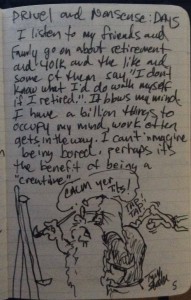 DRIVEL AND NONSENSE: DAYS
I listen to my friends and
family go on about retirement
and work and the like and
some of them say "I don't
know what I'd do with myself
if I retired.". It blows my mind.
I have a billion things to
occupy my mind, work often
gets in the way. I can't imagine
being bored. perhaps it's
the benefit of being a
"creative"
5